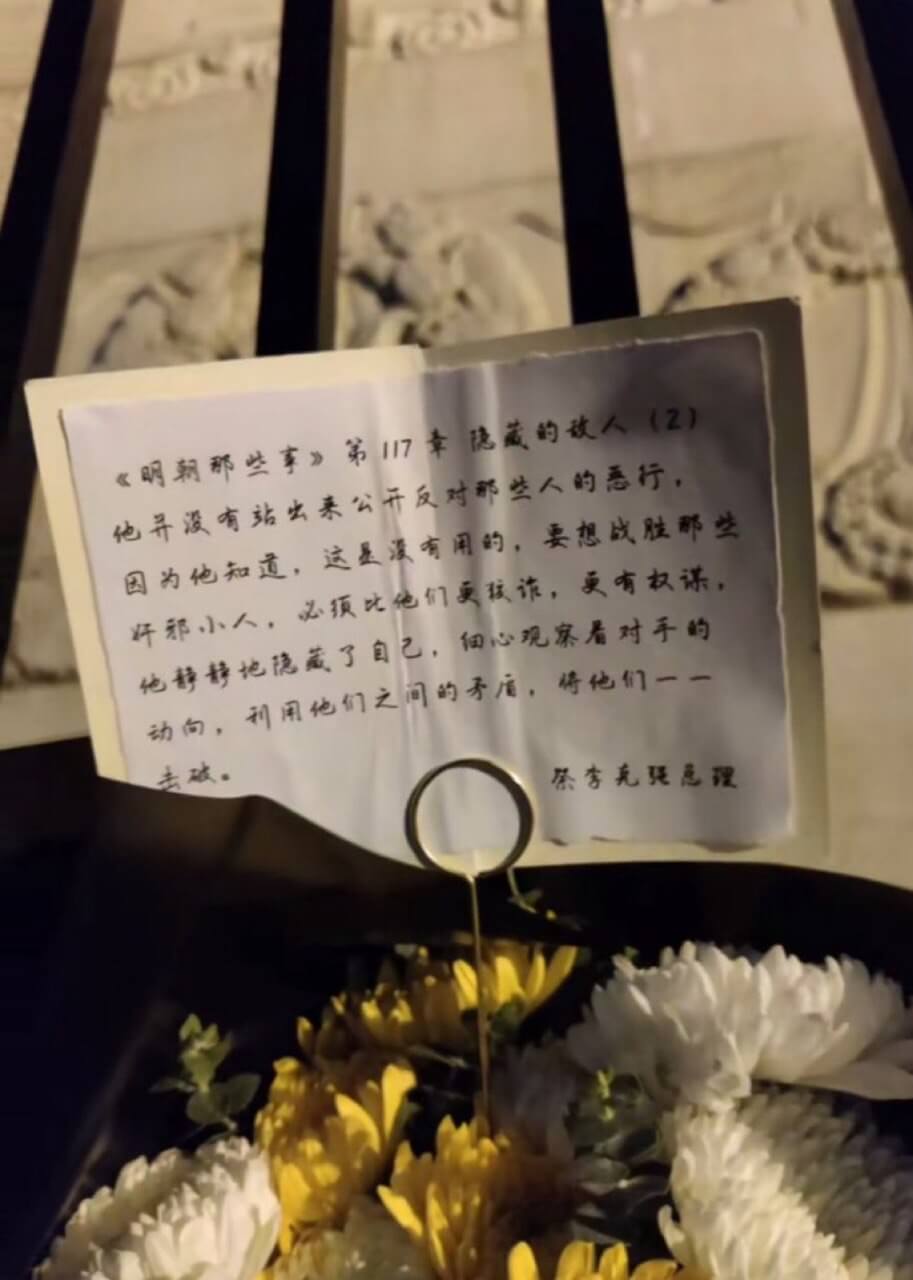 《明朝那些事》第117章 隐藏的敌人（2）
他并没有站出来公开反对那些人的恶行，
因为他知道，这是没有用的，要想战胜那些
奸邪小人，必须比他们更狡诈，更有权谋，
他静静地隐藏了自己，细心观察着对手的
动向，利用他们之间的矛盾，将他们一一
击破。
祭李克强总理